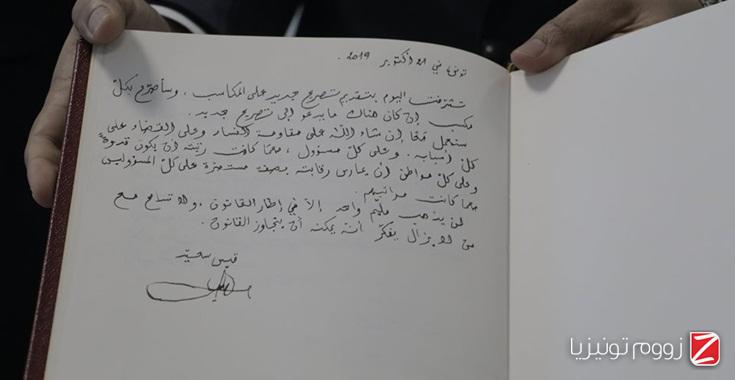 تونس في 21 أكتوبر 2019.
تشرفت اليوم بتقديم تصريح جديد على المكاسب، وسأصرح بكلّ
مكسب إن كان هناك ما يدعو إلى تصريح جديد.
سنعمل معًا إن شاء الله على مقاومة الفساد وعلى القضاء على
كلّ أسبابه. وعلى كلّ مسؤول، مهما كانت رتبته أن يكون قدوةً
وعلى كلّ مواطن أن يمارس رقابته بصفة مستمرّة على كلّ المسؤولين
مهما كانت مراتبهم.
لن يذهب ملّيم واحد إلاّ في إطار القانون. ولا تسامح مع
من لا يزال يفكّر أنّه يمكنه أن يتجاوز القانون.
قيس سعيّد
زووم تونيزيا
Z